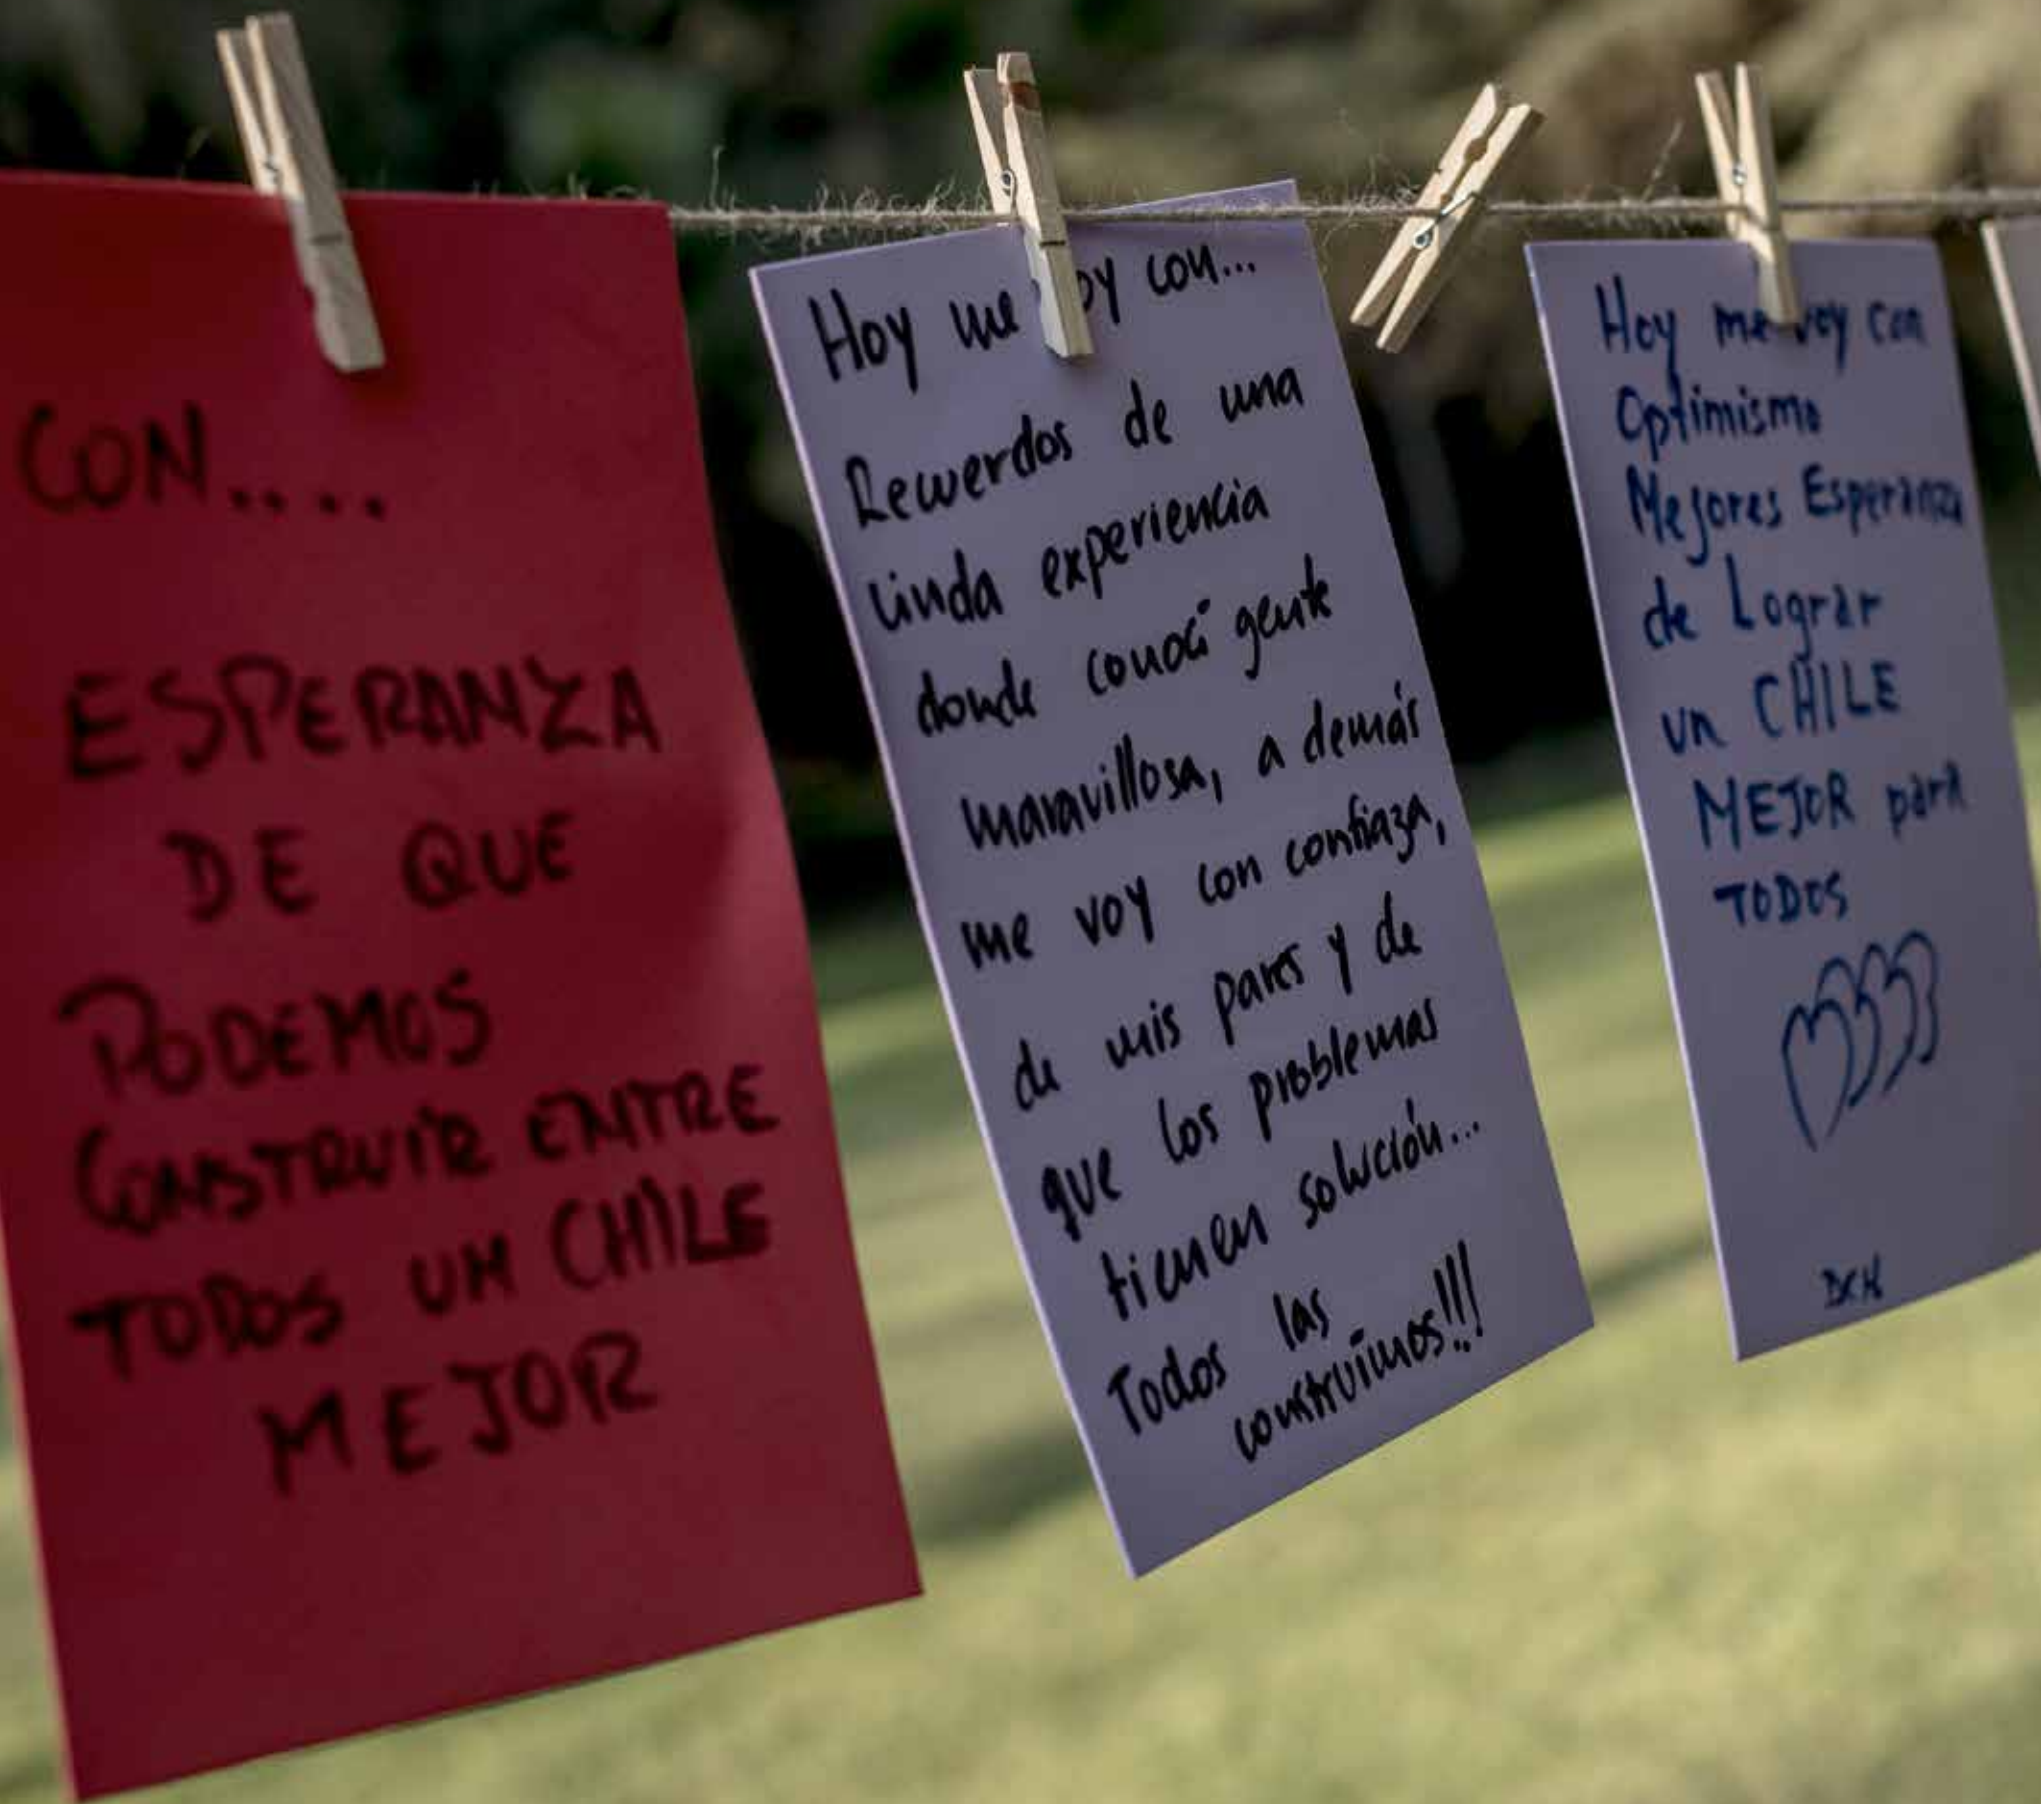 CON....
ESPERANZA
DE QUE
PODEMOS
CONSTRUIR ENTRE
TODOS UN CHILE
MEJOR
Hoy me voy con...
Recuerdos de una
linda experiencia
donde conocí gente
maravillosa, a demás
me voy con confiaza,
de mis pares y de
que los problemas
tienen solución...
Todos las
construimos!!!
Hoy me voy con
Optimismo
Mejores Esperanza
de Lograr
un CHILE
MEJOR para
TODOS